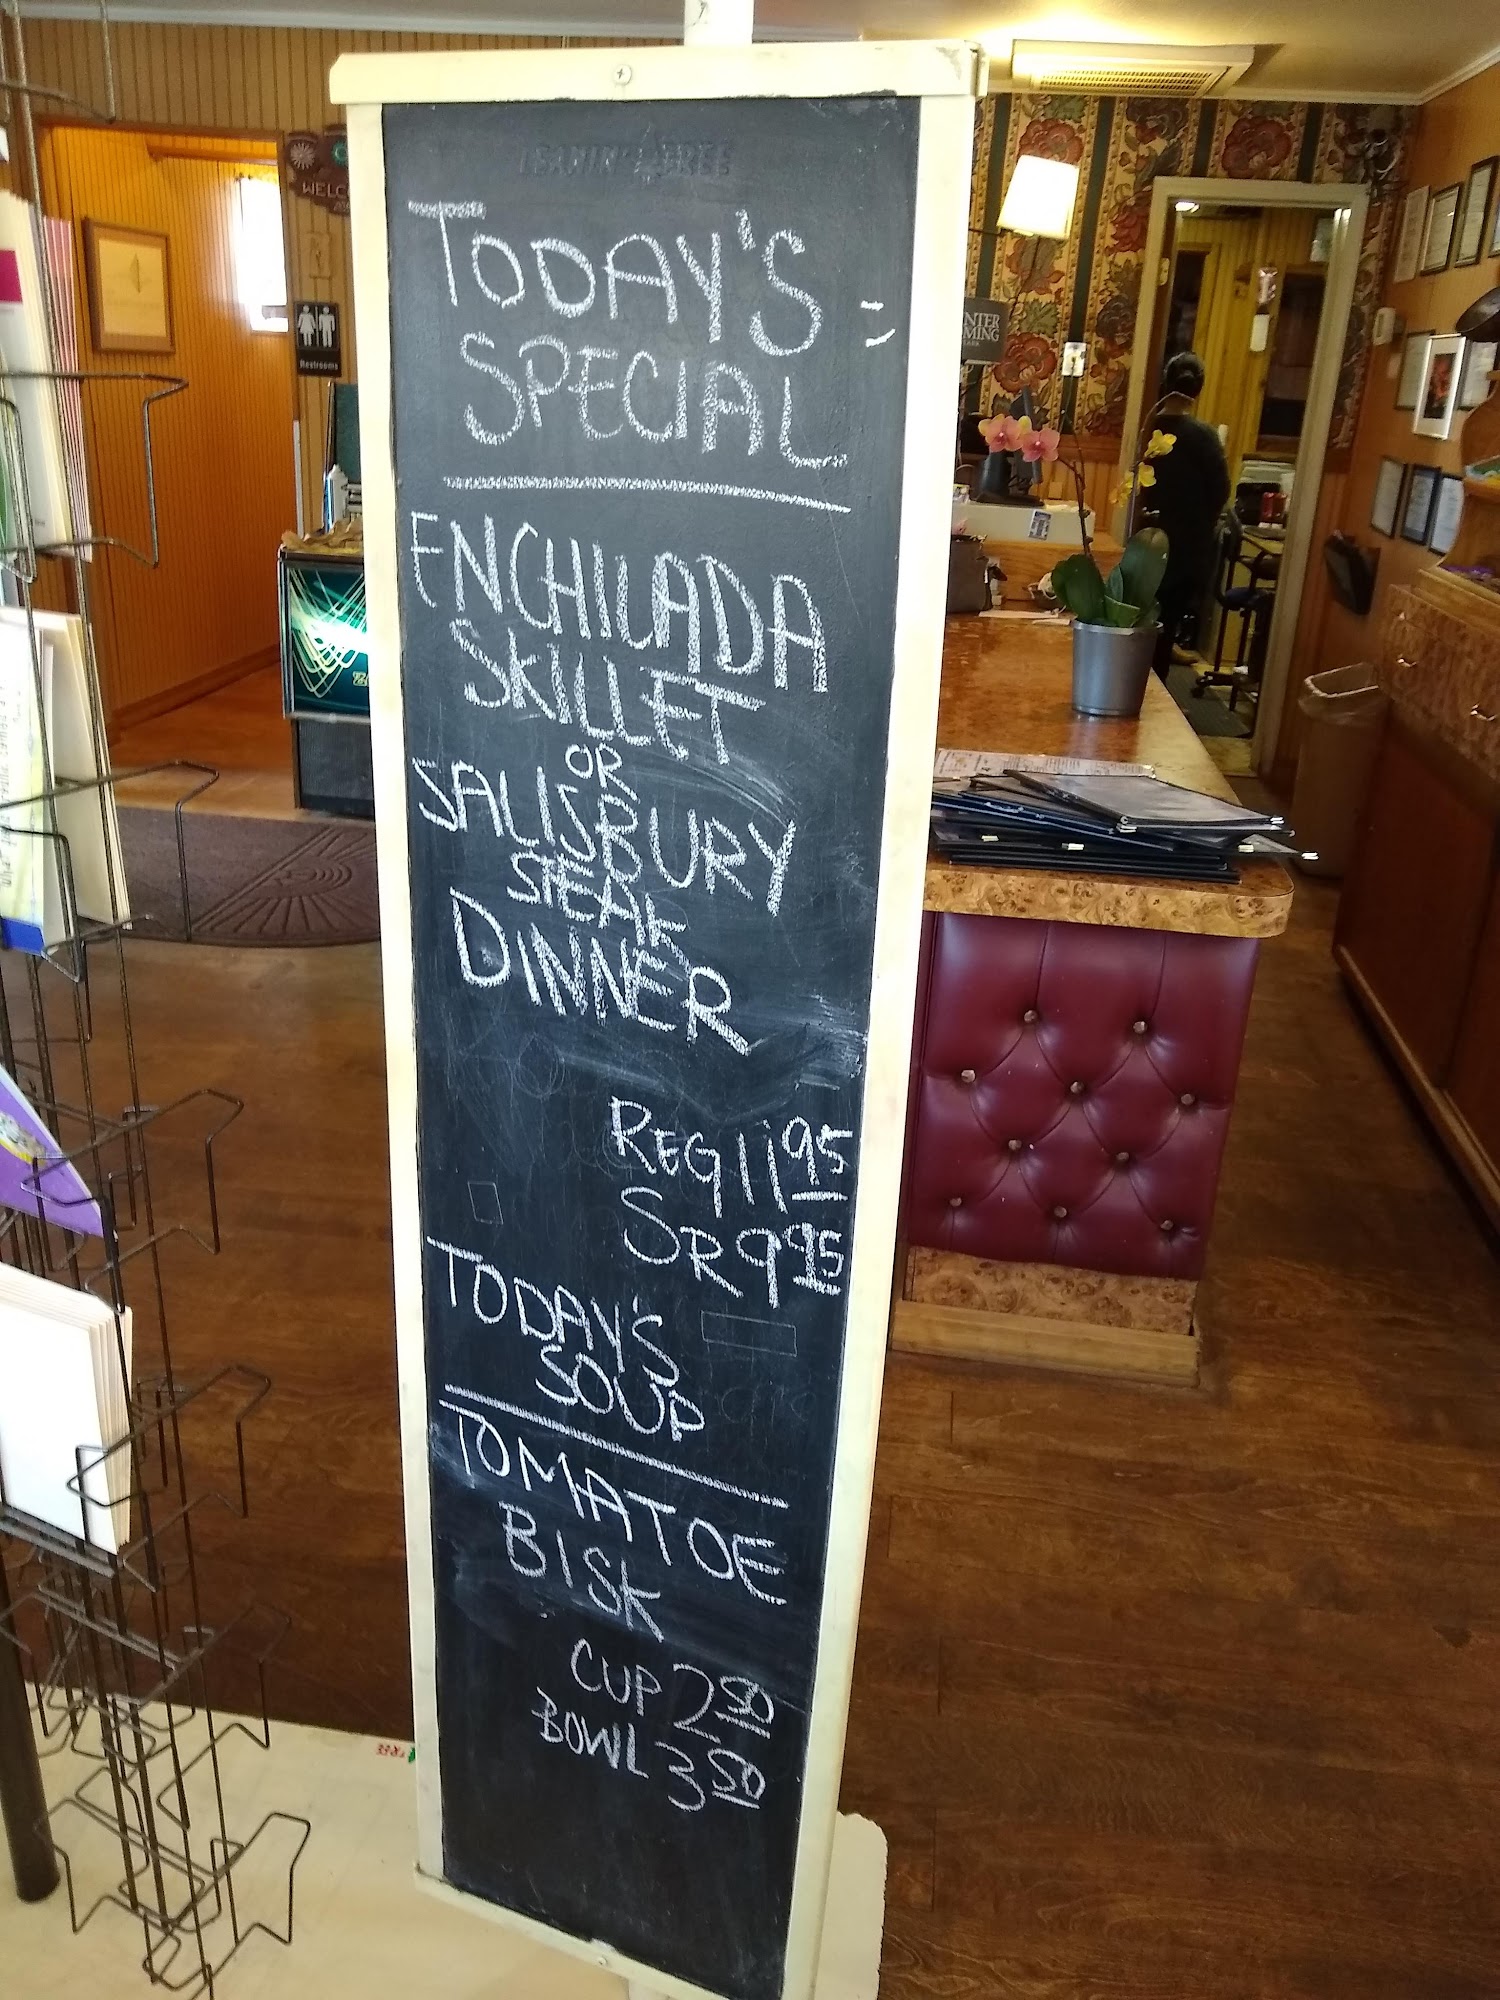 LEANIN' TREE
TODAY'S =
SPECIAL
ENCHILADA
SKILLET
OR
SALISBURY
STEAK
DINNER
REG 11 95
SR 9 95
TODAY'S
SOUP
TOMATOE
BISK
CUP 2 50
BOWL 3 50
Restrooms